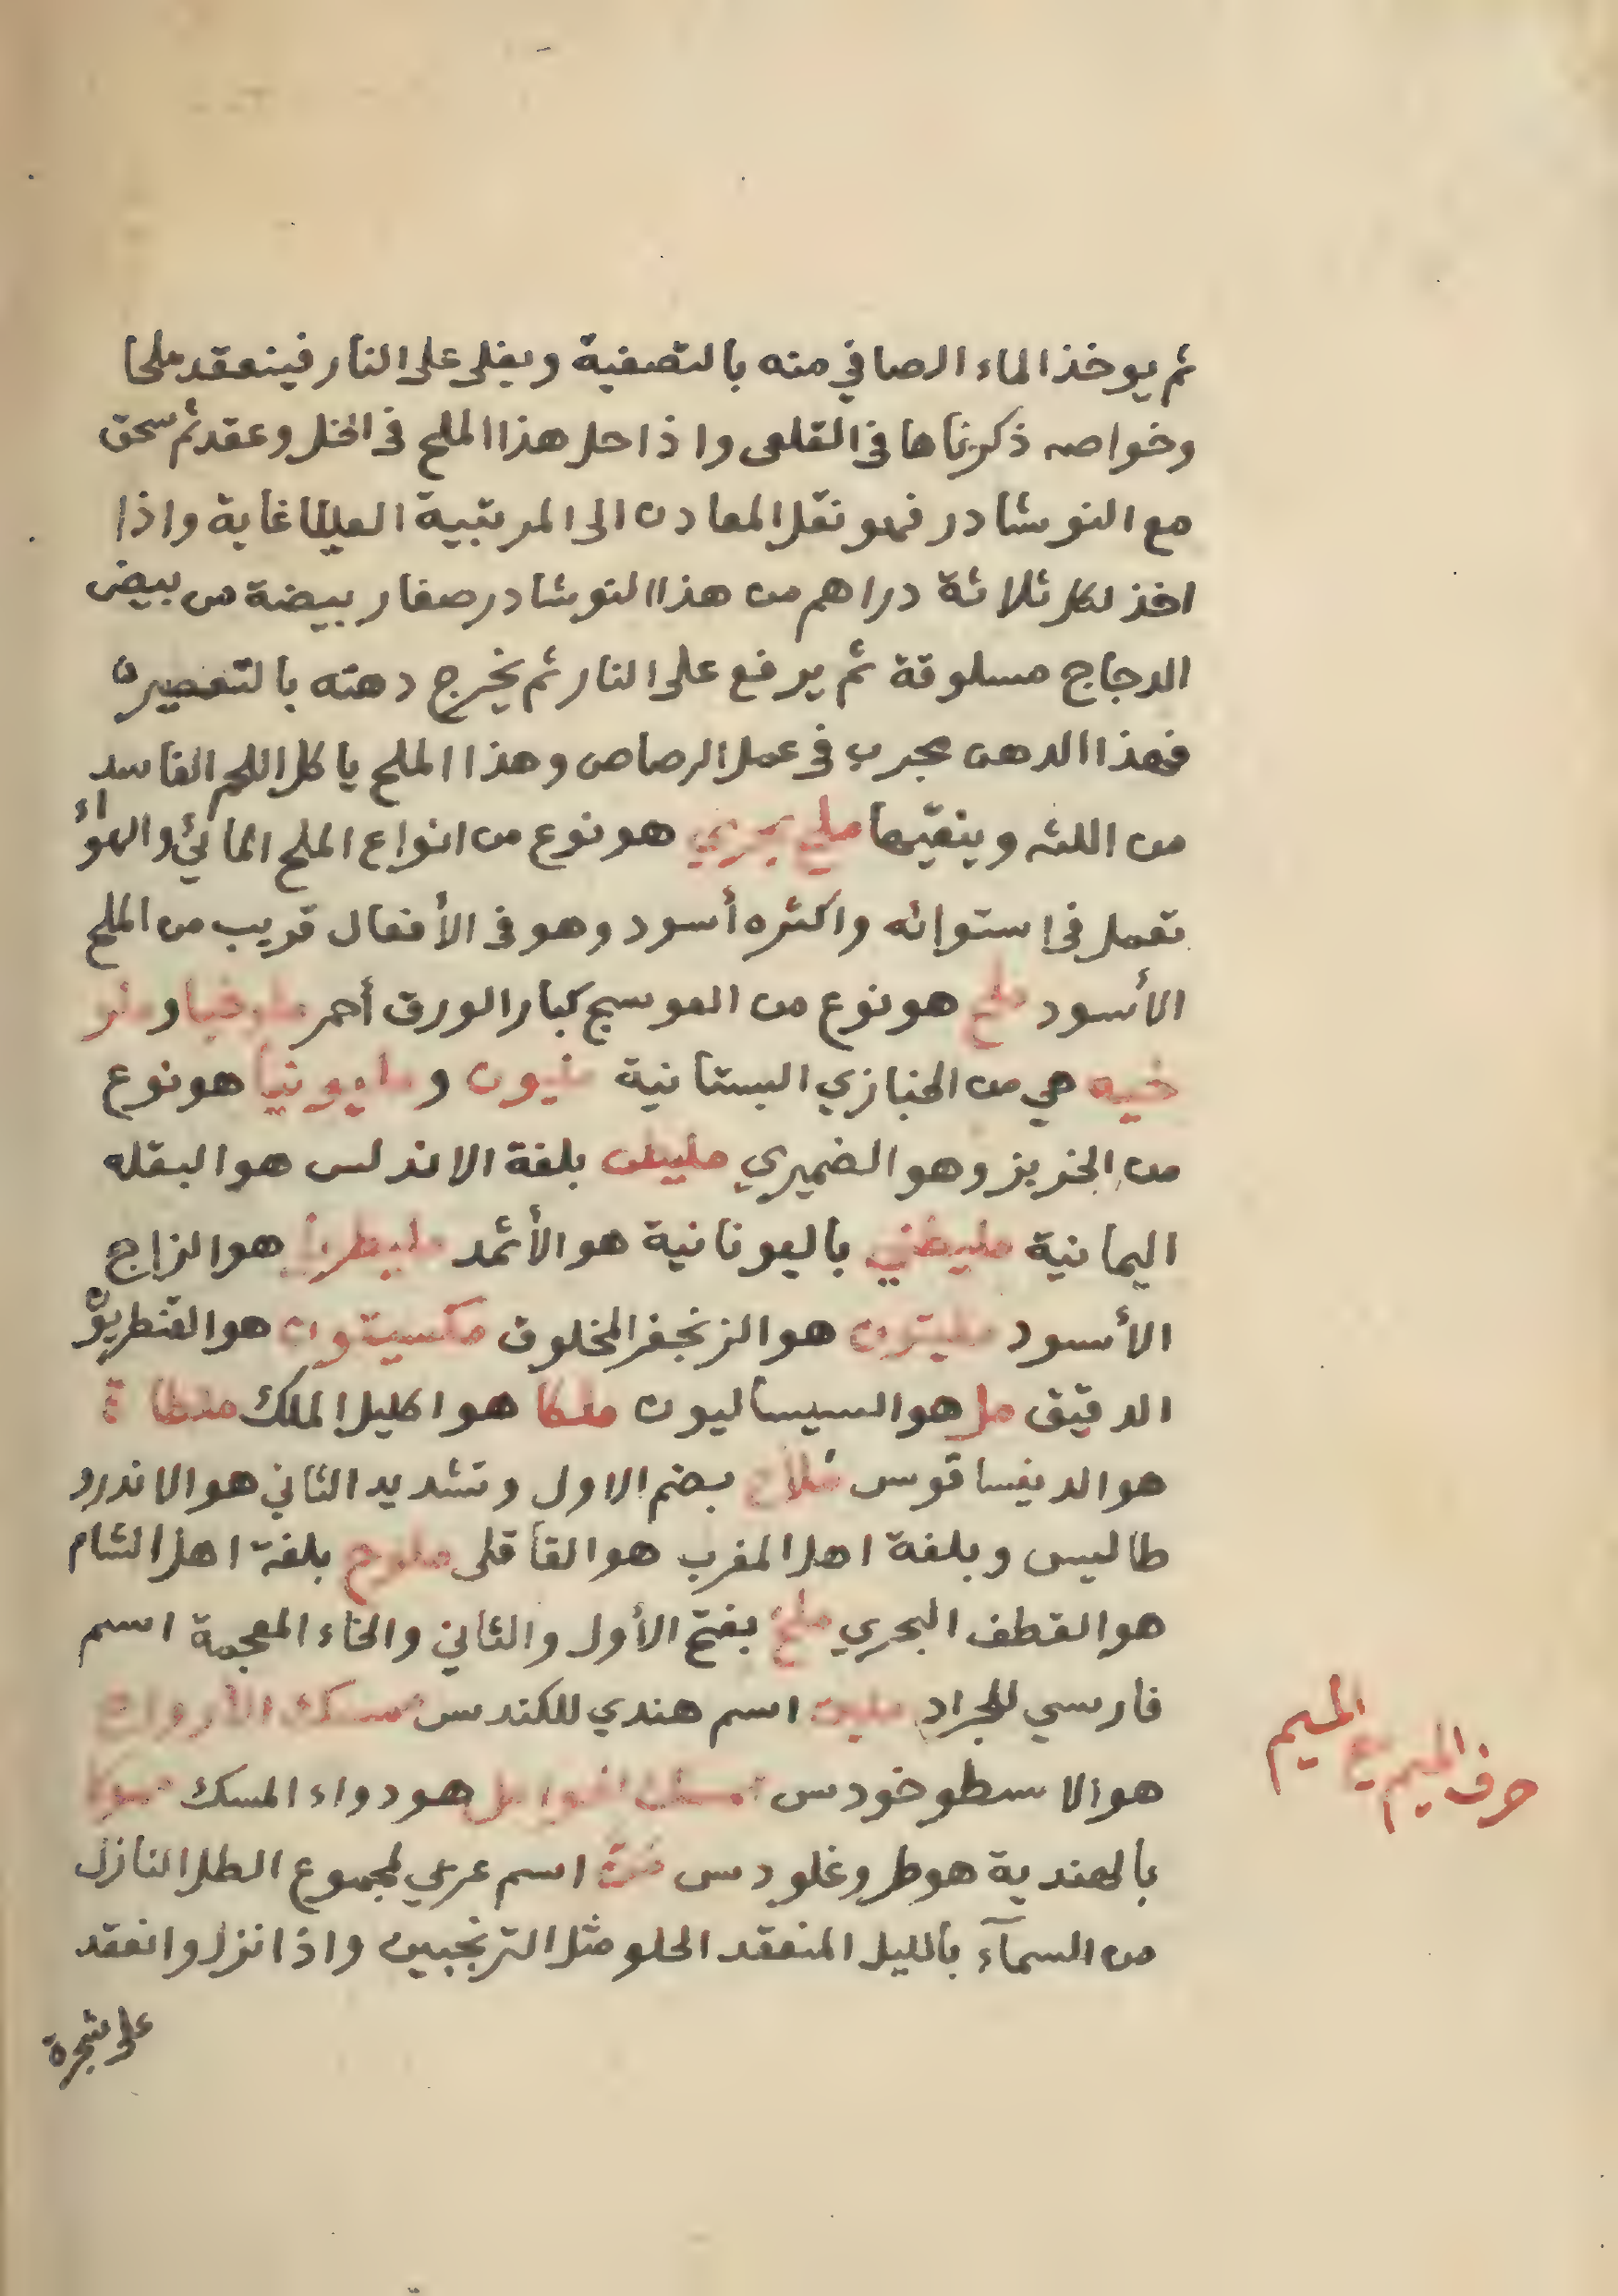 ثم يوخذ الماء الصافي منه بالتصفية ويغلى على النار فينعقد ملحا
وخواصه ذكرناها في القلى واذا حل هذا الملح في الخل وعقد ثم سحق
مع النوشادر فهو نقل المعادن الى المرتبية العليا غاية واذا
اخذ لكل ثلاثة دراهم من هذا النوشادر صفار بيضة من بيض
الدجاج مسلوقة ثم يرفع على النار ثم يخرج دهنه بالتعصير
فهذا الدهن مجرب في عمل الرصاص وهذا الملح ياكل اللحم الفاسد
من اللثه وينقيها ملح بحري هو نوع من انواع الملح المائي والهواء
تعمل في استوائه واكثره أسود وهو في الأفعال قريب من الملح
الأسود ملح هو نوع من العوسج كبار الورق أحمر ملوخيا وملو
خيه هي من الخبازي البستانية مليون و مليونيا هو نوع
من الخربز وهو الضميري مليطن بلغة الاندلس هو البقله
اليمانية باليونانية هو الأثمد هو الزاج
الأسود هو الزنجفر المخلوق مكسيتون هو القنطريون
الدقيق مل هو السيساليون ملكا هو اكليل الملك
هو الديفساقوس ملاح بضم الاول وتشديد الثاني هو الاندرو
طاليس وبلغة اهل المغرب هو القاقلى ملوح بلغة اهل الشام
هو القطف البحري ملخ بفتح الأول والثاني والخاء المعجمة اسم
فارسي للجراد اسم هندي للكندس ممسك الأرواح
هو الاسطوخودس هو دواء المسك
بالهندية هو طروغلودس اسم عربي لمجموع الطل النازل
من السمآء بالليل المنعقد الحلو مثل الترنجبين واذا نزل وانعقد
على شجرة
حرف الميم مع الميم